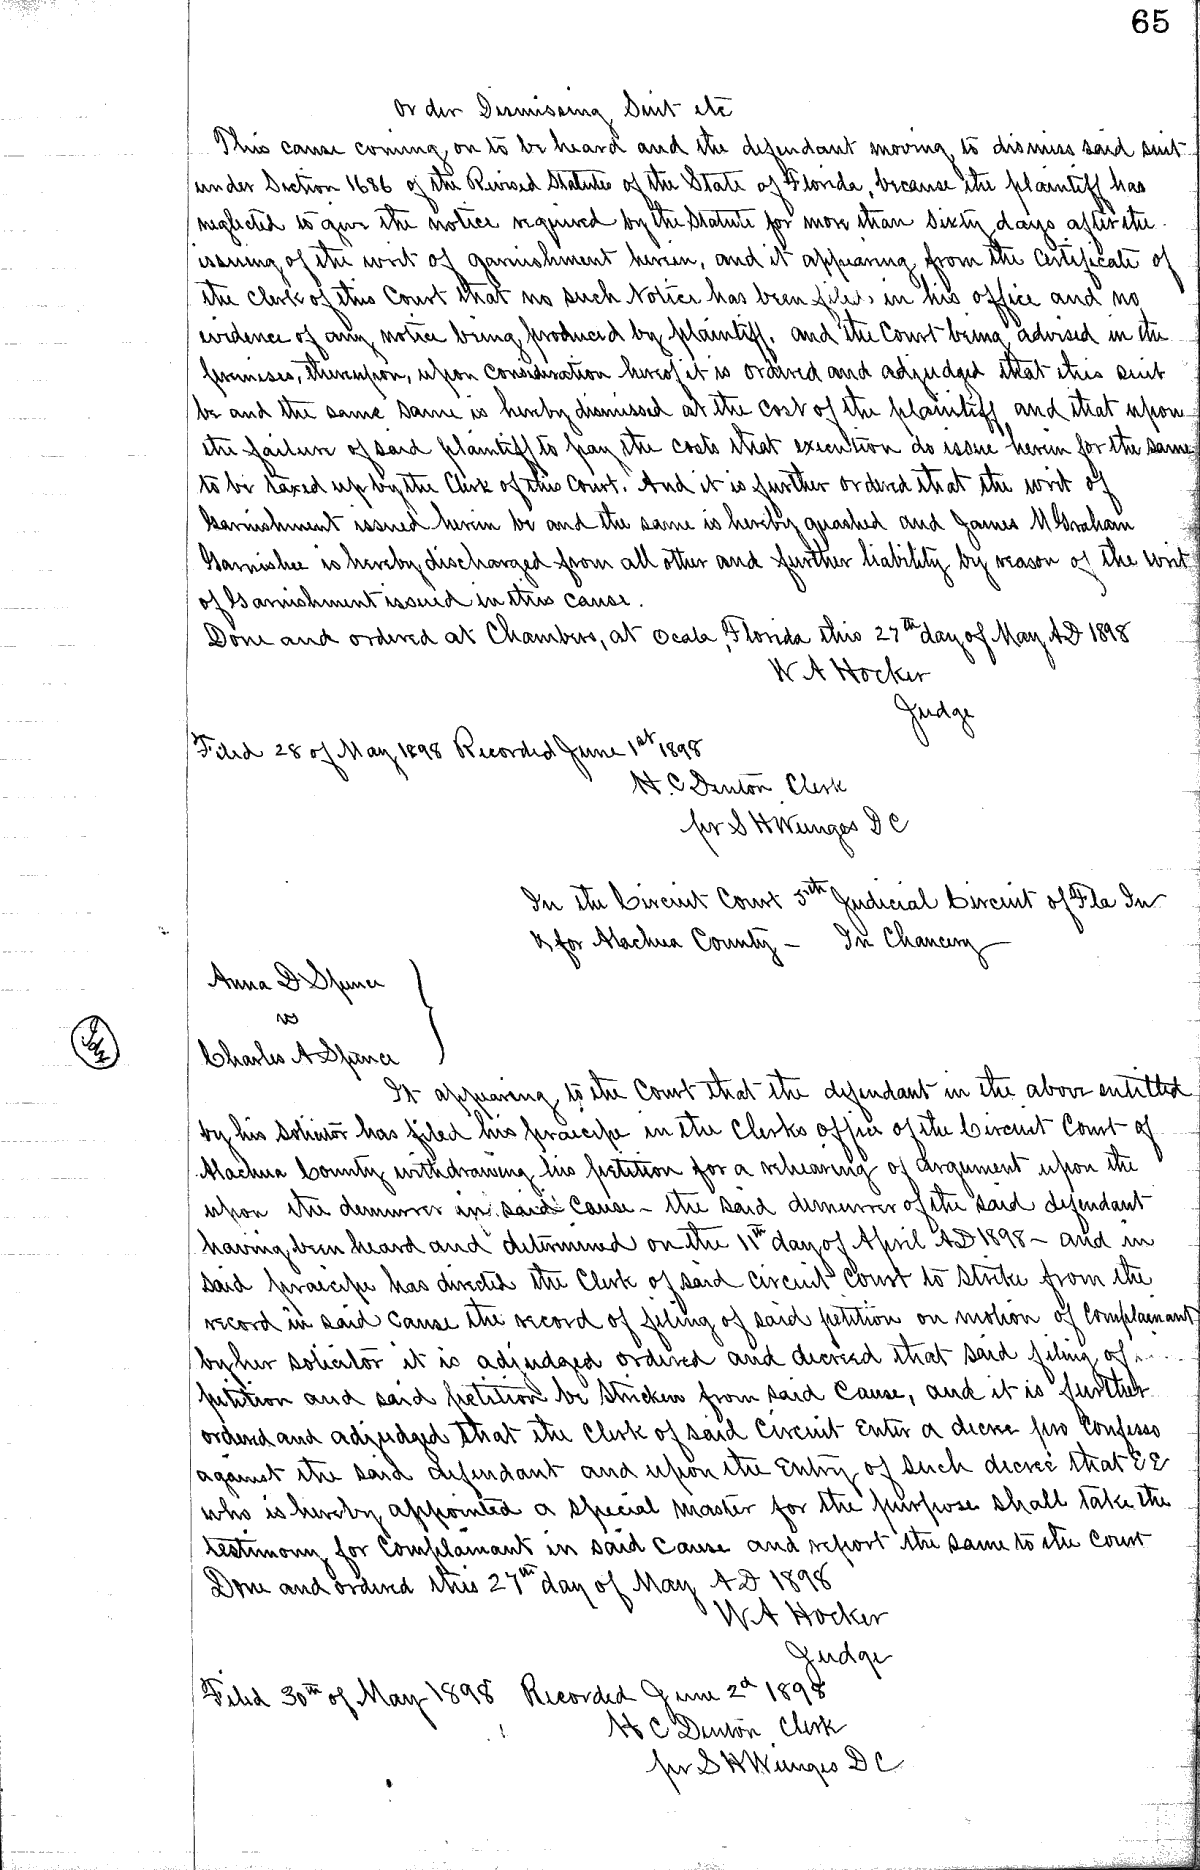 65
Order Dismissing Suit etc
This cause coming on to be heard and the defendant moving to dismiss said suit
under Section 1686 of the Revised Statutes of the State of Florida, because the plaintiff has
neglected to give the notice required by the Statute for more than Sixty days after the
issuing of the writ of garnishment herein, and it appearing from the Certificate of
the Clerk of this Court that no such Notice has been filed in his office and no
evidence of any notice being produced by plaintiff. and the Court being advised in the
premises, thereupon, upon consideration hereof it is ordered and adjudged that this suit
be and the same same is hereby dismissed at the cost of the plaintiff and that upon
the failure of said plaintiff to pay the costs that execution do issue herein for the same
to be taxed up by the Clerk of this Court. And it is further ordered that the writ of
Garnishment issued herein be and the same is hereby quashed and James McGraham
Garnishee is hereby discharged from all other and further liability by reason of the writ
of Garnishment issued in this cause.
Done and ordered at Chambers, at Ocala, Florida this 27th day of May AD 1898
W A Hocker
Judge
Filed 28 of May 1898 Recorded June 1st 1898
H. C Denton Clerk
pr S H Wienges D C
In the Circuit Court 5th Judicial Circuit of Fla In
& for Alachua County - In Chancery
Anna D Spence
vs
Charles A Spence
It appearing to the Court that the defendant in the above entitled
by his solicitor has filed his praecipe in the Clerks office of the Circuit Court of
Alachua County withdrawing his petition for a rehearing of argument upon the
upon the demurrer in said Cause - the said demurrer of the said defendant
having been heard and determined on the 11th day of April AD 1898 - and in
said praecipe has directed the Clerk of said Circuit Court to Strike from the
record in said Cause the record of filing of said petition on motion of Complainant
by her solicitor it is adjudged ordered and decreed that said filing of
petition and said petition be Stricken from said Cause, and it is further
ordered and adjudged that the Clerk of said Circuit Enter a decree pro Confesso
against the said defendant and upon the Entry of such decree that E E
who is hereby appointed a Special Master for the purpose shall take the
testimony for Complainant in said Cause and report the same to the Court
Done and ordered this 27th day of May AD 1898
W A Hocker
Judge
Filed 30th of May 1898 Recorded June 2d 1898
H C Denton Clerk
pr S H Wienges D C